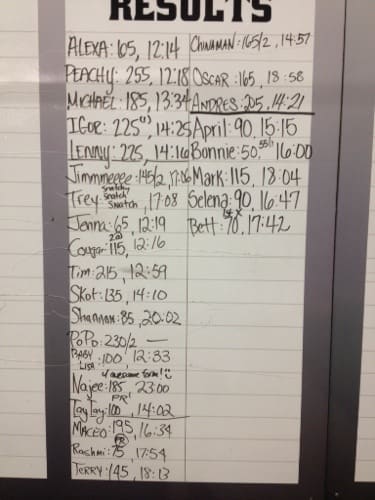 RESULTS
ALEXA: 165, 12:14
PEACHY: 255, 12:18
MICHAEL: 185, 13:34
IGOR: 225, 14:25
LENNY: 225, 14:16
Jimmmeeee: 145/2, 17:06
snatch,
Trey: snatch
snatch, 17:08
Jenna: 65, 12:19
Cougar: 115, 12:16
Tim: 215, 12:59
Skot: 135, 14:10
Shannan: 85, 20:02
PoPo: 230/2 —
BABY
LISA: 100, 12:33
4 awesome form!
Najee: 185, 23:00
PR!
TayTay: 100, 14:02
MACEO: 195, 16:34
PR
Rashmi: 75, 17:54
TERRY: 145, 18:13
CHINAMAN: 165/2, 14:57
OSCAR: 165, 18:58
ANDRES: 205, 14:21
April: 90, 15:15
Bonnie: 50, 55lb 16:00
Mark: 115, 18:04
Selena: 90, 16:47
Bett: 70, 17:42